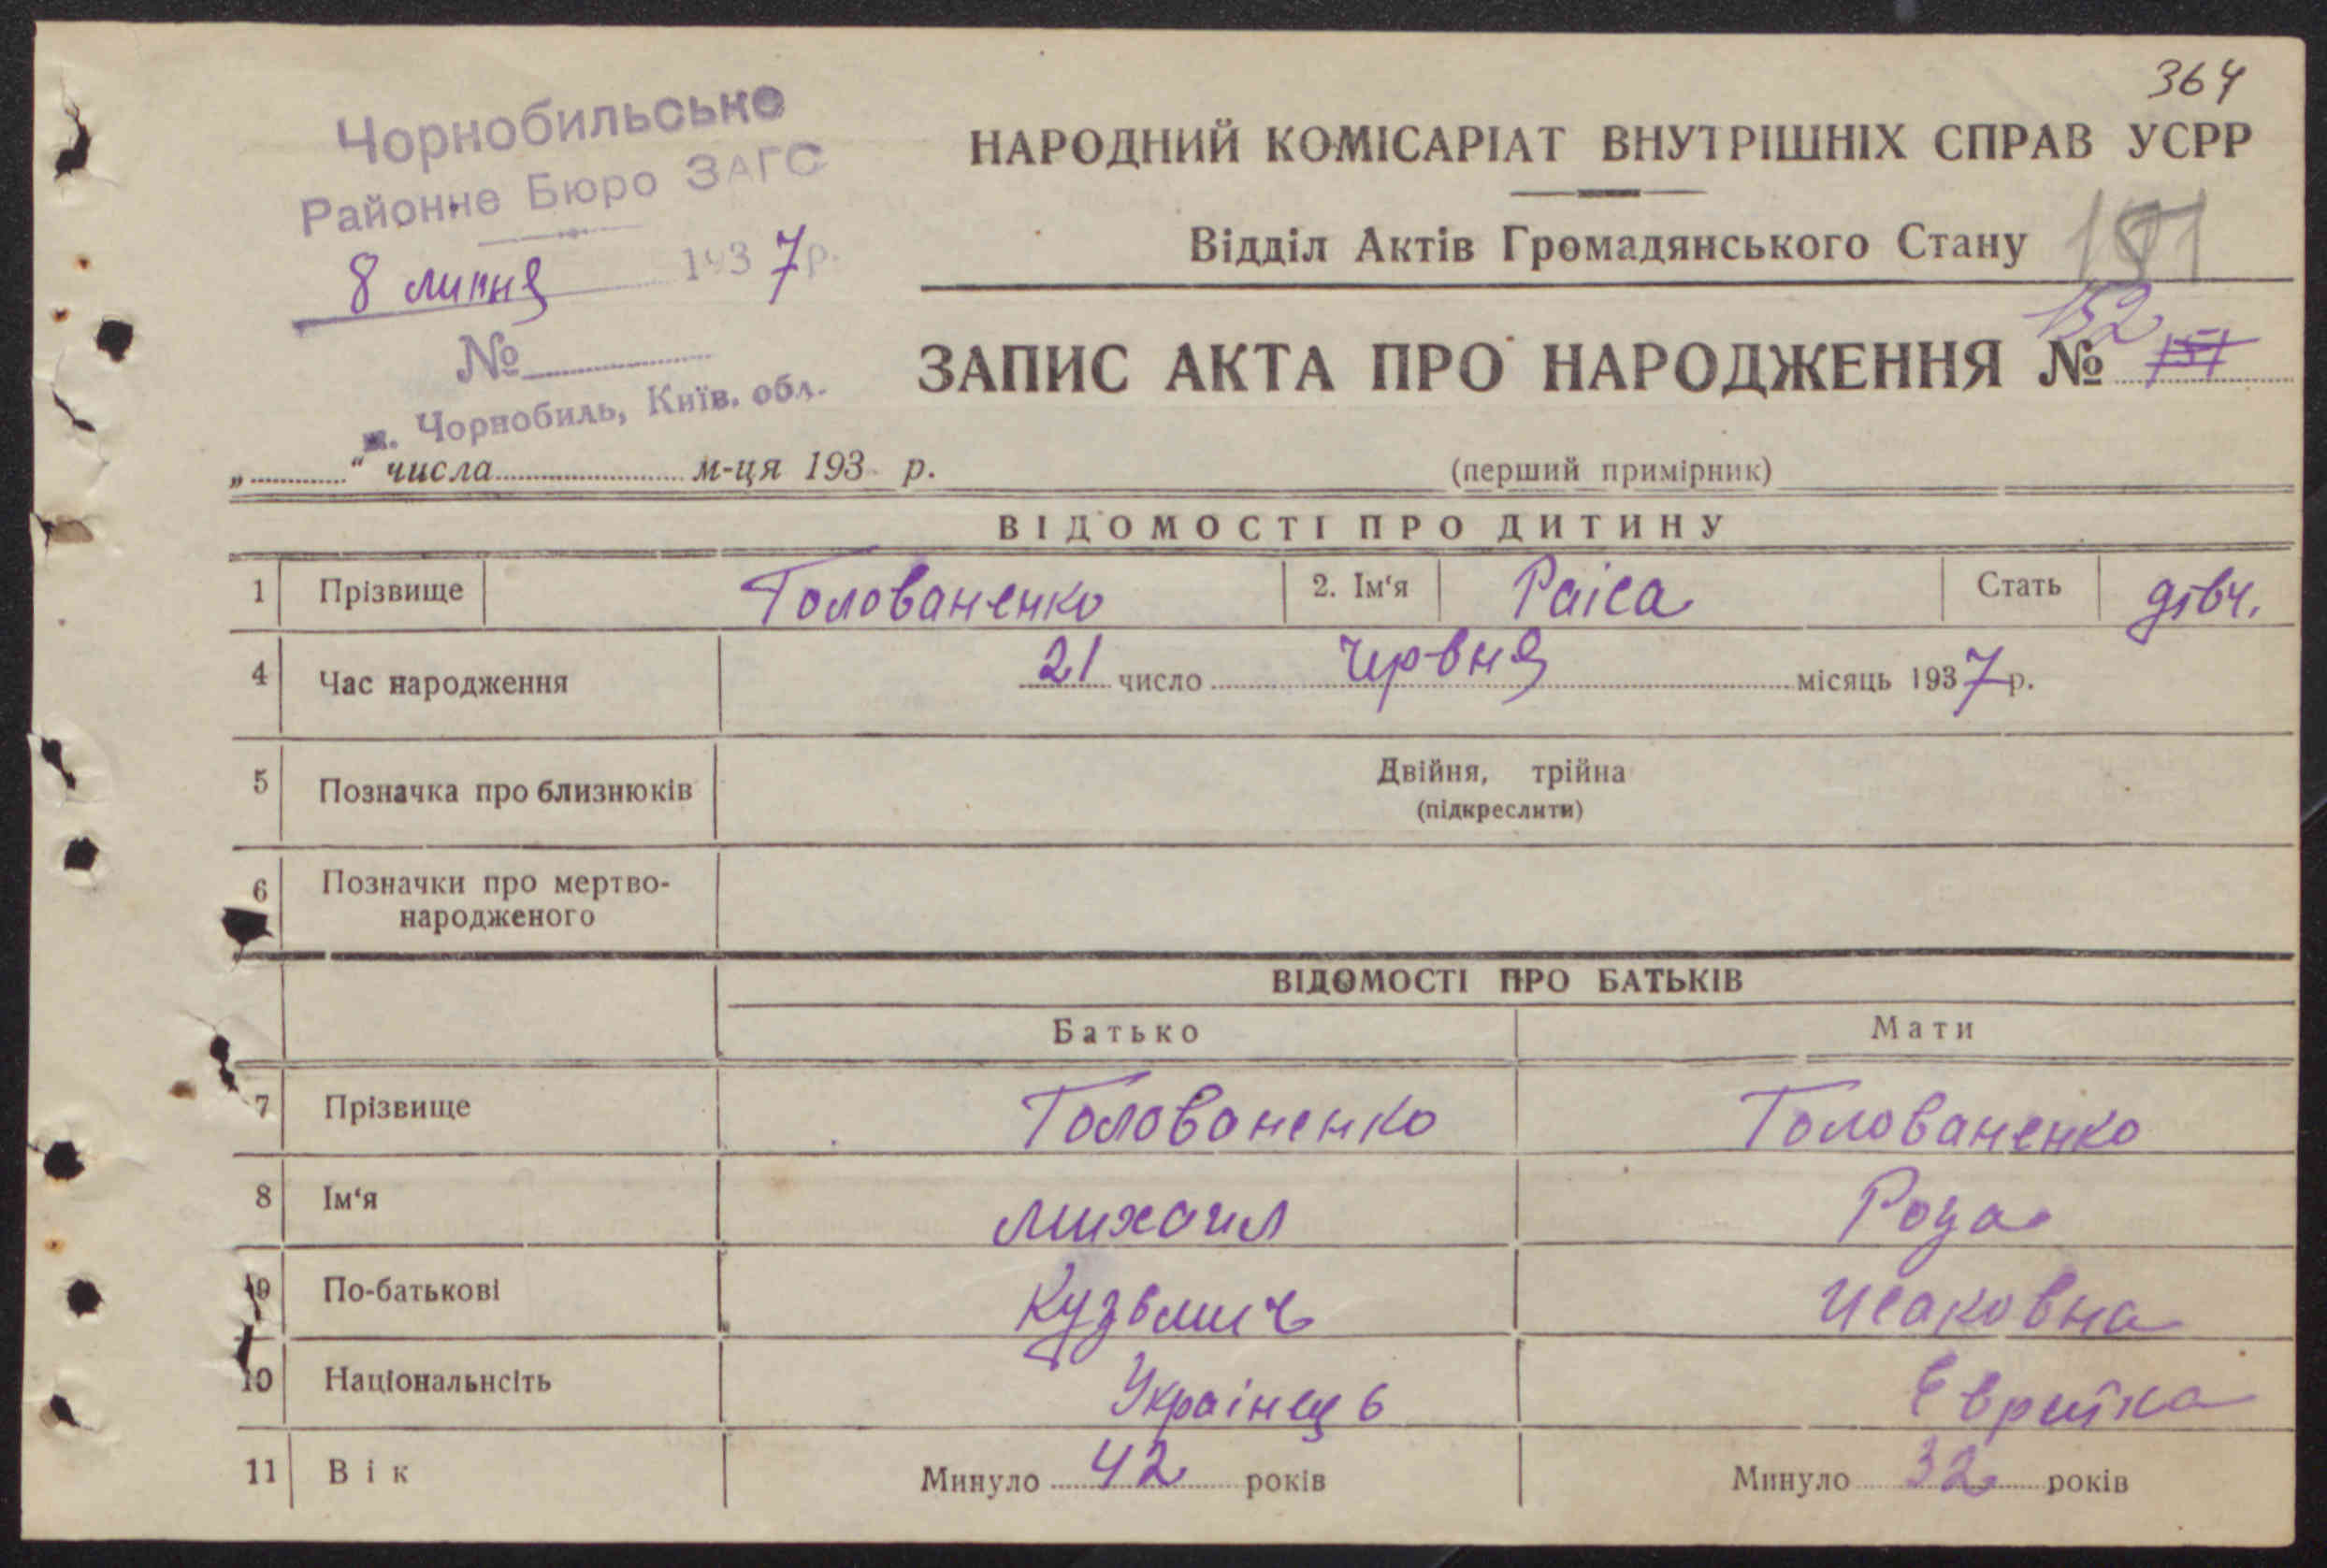 364
Чорнобильське
Районне Бюро ЗАГС
8 липня 1937 р.
№
м. Чорнобиль, Київ. обл.
„ “ числа м-ця 193 р.
НАРОДНИЙ КОМІСАРІАТ ВНУТРІШНІХ СПРАВ УСРР
Відділ Актів Громадянського Стану
152
ЗАПИС АКТА ПРО НАРОДЖЕННЯ № 151
(перший примірник)
ВІДОМОСТІ ПРО ДИТИНУ
1 Прізвище Голованенко 2. Ім‘я Раіса Стать дівч.
4 Час народження 21 число червня місяць 1937 р.
5 Позначка про близнюків Двійня, трійна
(підкреслити)
6 Позначки про мертво-
народженого
ВІДОМОСТІ ПРО БАТЬКІВ
Батько Мати
7 Прізвище Голованенко Голованенко
8 Ім‘я Михаил Роза
9 По-батькові Кузьмич Исаковна
10 Національнсіть Украінець Еврейка
11 Вік Минуло 42 років Минуло 32 років